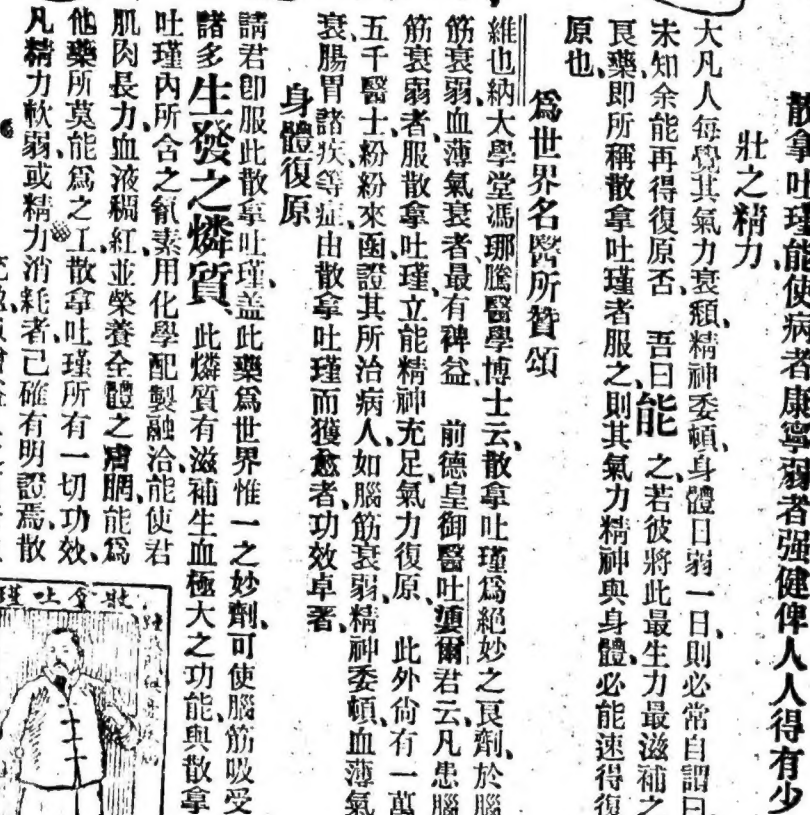 散拿吐瑾能使病者康寧弱者强健俾人人得有少
壯之精力
大凡人每覺其氣力衰頹、精神委頓、身體日弱一日、則必常自謂曰、
未知余能再得復原否 吾曰能之若彼將此最生力最滋補之
良藥、即所稱散拿吐瑾者服之、則其氣力精神與身體、必能速得復
原也、
爲世界名醫所贊頌
維也納大學堂馮琊騰醫學博士云、散拿吐瑾爲絕妙之良劑、於腦
筋衰弱、血薄氣衰者、最有裨益 前德皇御醫吐瀕爾君云、凡患腦
筋衰弱者、服散拿吐瑾、立能精神充足、氣力復原、 此外尙有一萬
五千醫士、粉粉來函、證其所治病人、如腦筋衰弱、精神委頓、血薄氣
衰、腸胃諸疾等症、由散拿吐瑾而獲愈者、功效卓著、
身體復原
請君卽服此散拿吐瑾、盖此藥爲世界惟一之妙劑、可使腦筋吸受
諸多生發之燐質 此燐質有滋補生血極大之功能、與散拿
吐瑾內所含之氤素、用化學配製融洽、能使君
肌肉長力、血液稠紅、並榮養全體之膚膶、能爲
他藥所莫能爲之工、散拿吐瑾所有一切功效、
凡精力軟弱或精力消耗者、已確有明證焉、散
散拿吐瑾